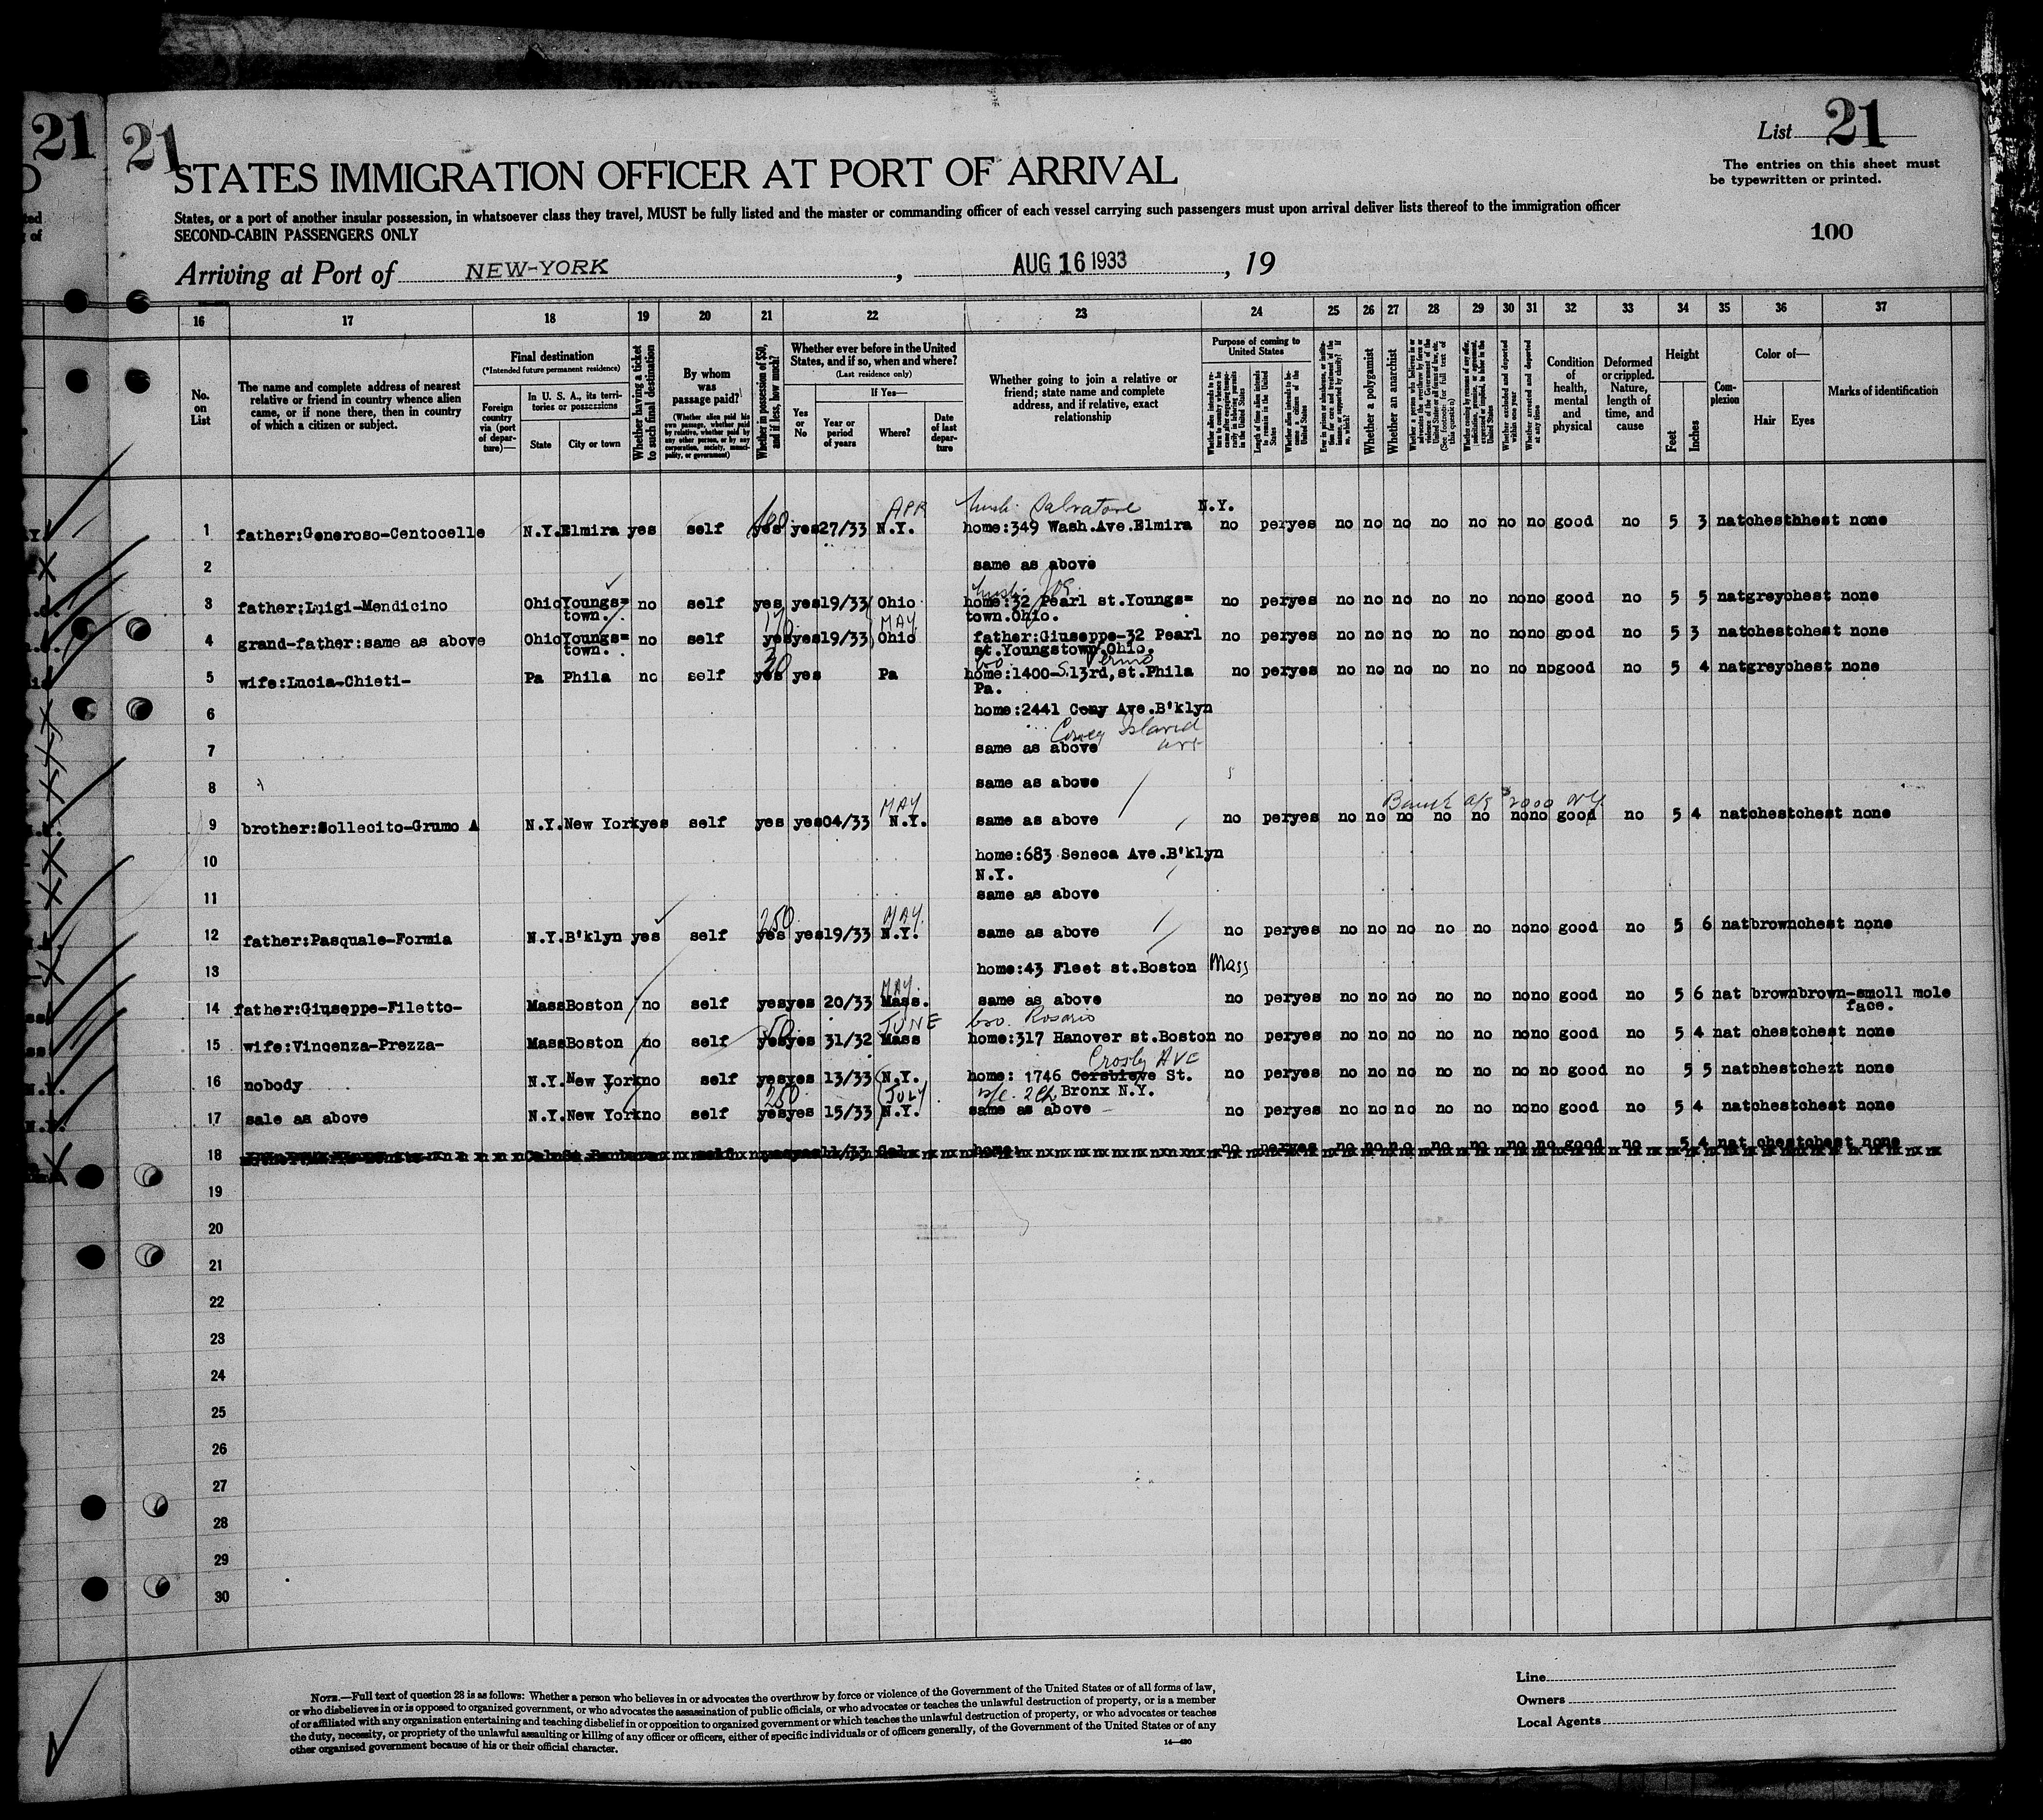 21
21
List 21
STATES IMMIGRATION OFFICER AT PORT OF ARRIVAL
The entries on this sheet must
be typewritten or printed.
States, or a port of another insular possession, in whatsoever class they travel, MUST be fully listed and the master or commanding officer of each vessel carrying such passengers must upon arrival deliver lists thereof to the immigration officer
SECOND-CABIN PASSENGERS ONLY
100
Arriving at Port of NEW-YORK, AUG 16 1933, 19
16 17 18 19 20 21 22 23 24 25 26 27 28 29 30 31 32 33 34 35 36 37
No. on List
The name and complete address of nearest relative or friend in country whence alien came, or if none there, then in country of which a citizen or subject.
Final destination
(*Intended future permanent residence)
Foreign country via (port of departure)—
In U. S. A., its territories or possessions
State
City or town
Whether having a ticket to such final destination
By whom was passage paid?
(Whether alien paid his own passage, whether paid by relative, whether paid by any other person, or by any corporation, society, municipality, or government)
Whether in possession of $50, and if less, how much?
Whether ever before in the United States, and if so, when and where?
(Last residence only)
Yes or No
If Yes—
Year or period of years
Where?
Date of last departure
Whether going to join a relative or friend; state name and complete address, and if relative, exact relationship
Purpose of coming to United States
Whether a polygamist
Whether an anarchist
Condition of health, mental and physical
Deformed or crippled. Nature, length of time, and cause
Height
Feet
Inches
Complexion
Color of—
Hair
Eyes
Marks of identification
APR husb. Salvatore N.Y.
1 father:Generoso-Centocelle N.Y. Elmira yes self yes yes 27/33 N.Y. home:349 Wash.Ave.Elmira no per yes no no no no no no no good no 5 3 nat chest hhest none
2 same as above
husb. Jos.
3 father:Luigi-Mendicino Ohio Youngs= no self yes yes 19/33 Ohio home:32 Pearl st.Youngs= no per yes no no no no no no no good no 5 5 nat grey chest none
town. town.Ohio.
MAY
4 grand-father:same as above Ohio Youngs= no self yes yes 19/33 Ohio father:Giuseppe-32 Pearl no per yes no no no no no no no good no 5 3 nat chest chest none
town. st.Youngstown,Ohio.
30 bro.
5 wife:Lucia-Chieti- Pa Phila no self yes yes Pa home:1400-S.13rd,st.Phila no per yes no no no no no no no good no 5 4 nat grey chest none
Pa.
6 home:2441 Cony Ave.B'klyn
Coney Island ave
7 same as above
8 same as above
MAY $2000 N.Y.
9 brother:Sollecito-Grumo A N.Y. New York yes self yes yes 04/33 N.Y. same as above no per yes no no no no no no no good no 5 4 nat chest chest none
10 home:683 Seneca Ave.B'klyn
N.Y.
11 same as above
250 MAY.
12 father:Pasquale-Formia N.Y. B'klyn yes self yes yes 19/33 N.Y. same as above no per yes no no no no no no no good no 5 6 nat brown chest none
13 home:43 Fleet st.Boston Mass
MAY.
14 father:Giuseppe-Filetto- Mass Boston no self yes yes 20/33 Mass. same as above no per yes no no no no no no no good no 5 6 nat brown brown-smoll mole
face.
50 JUNE bro. Rosario
15 wife:Vincenza-Prezza- Mass Boston no self yes yes 31/32 Mass home:317 Hanover st.Boston no per yes no no no no no no no good no 5 4 nat chest chest none
Crosby AVE
16 nobody N.Y. New York no self yes yes 13/33 N.Y. home: 1746 St. no per yes no no no no no no no good no 5 5 nat chest chezt none
250 JULY Bronx N.Y.
17 sale as above N.Y. New York no self yes yes 15/33 N.Y. same as above no per yes no no no no no no no good no 5 4 nat chest chest none
18 home: no per yes no no no no no no no good no 5 4 nat chest chest none
19
20
21
22
23
24
25
26
27
28
29
30
NOTE.—Full text of question 28 is as follows: Whether a person who believes in or advocates the overthrow by force or violence of the Government of the United States or of all forms of law,
or who disbelieves in or is opposed to organized government, or who advocates the assassination of public officials, or who advocates or teaches the unlawful destruction of property, or is a member
of or affiliated with any organization entertaining and teaching disbelief in or opposition to organized government or which teaches the unlawful destruction of property, or who advocates or teaches
the duty, necessity, or propriety of the unlawful assaulting or killing of any officer or officers, either of specific individuals or of officers generally, of the Government of the United States or of any
other organized government because of his or their official character.
14—480
Line
Owners
Local Agents